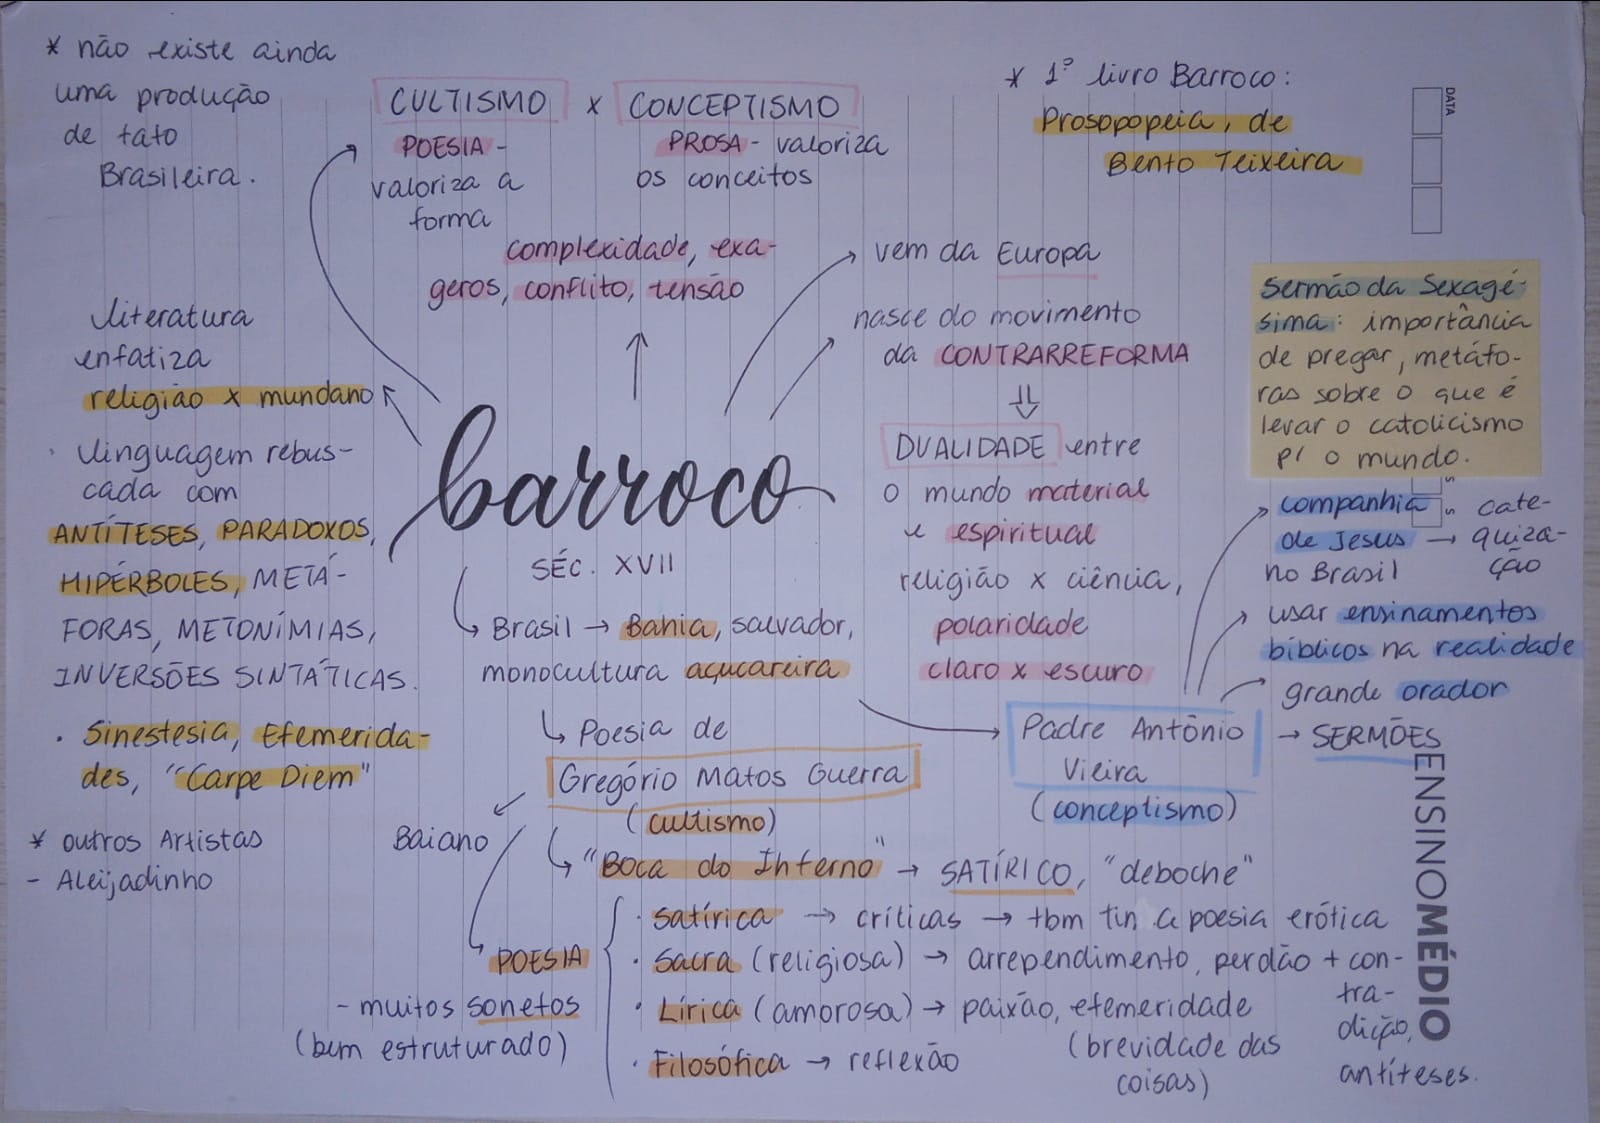 * não existe ainda
uma produção
de tato
Brasileira.
CULTISMO x CONCEPTISMO
POESIA -
valoriza a
forma
PROSA - valoriza
os conceitos
complexidade, exa-
geros, conflito, tensão
* 1º livro Barroco:
Prosopopeia, de
Bento Teixeira
DATA
vem da Europa
nasce do movimento
da CONTRARREFORMA
⇓
DUALIDADE entre
o mundo material
e espiritual
religião x ciência,
polaridade
claro x escuro
Sermão da Sexagé-
sima: importância
de pregar, metáfo-
ras sobre o que é
levar o catolicismo
p/ o mundo.
literatura
enfatiza
religião x mundano
· linguagem rebus-
cada com
ANTÍTESES, PARADOXOS,
HIPÉRBOLES, METÁ-
FORAS, METONÍMIAS,
INVERSÕES SINTÁTICAS.
· Sinestesia, Efemerida-
des, "Carpe Diem"
* outros Artistas
- Aleijadinho
barroco
SÉC. XVII
Brasil → Bahia, salvador,
monocultura açucareira
↳ Poesia de
Gregório Matos Guerra
(cultismo)
Baiano
↳ "Boca do Inferno" → SATÍRICO, "deboche"
POESIA
- muitos sonetos
(bem estruturado)
· satírica → críticas → tbm tin a poesia erótica
· Sacra (religiosa) → arrependimento, perdão + con-
tra-
dição,
antíteses.
· Lírica (amorosa) → paixão, efemeridade
(brevidade das
coisas)
· Filosófica → reflexão
Padre Antônio
Vieira
(conceptismo)
companhia
de Jesus → cate-
quiza-
ção
no Brasil
usar ensinamentos
bíblicos na realidade
grande orador
→ SERMÕES
ENSINOMÉDIO